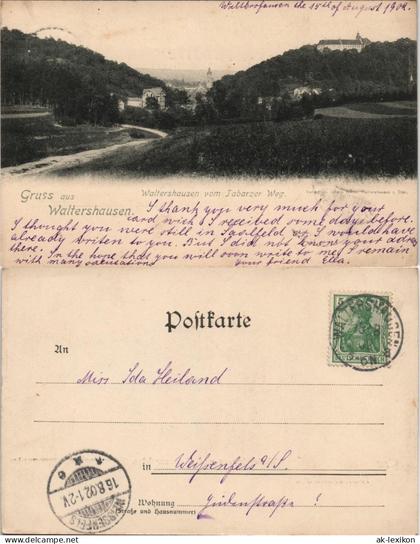 Waltershausen the 15th of August 1902.
Gruss aus
Waltershausen.
Waltershausen vom Tabarzer Weg.
I thank you very much for your
card wich I received some days before.
I thought you were still in Saalfeld or I would have
already writen to you. But I did not know your adress
there. In the hope that you will soon write to me I remain
with many
your friend Ella.
Postkarte
An
Miss Ida Heiland
in Weißenfels a/S.
Wohnung Judenstraße!
(Straße und Hausnummer)
WALTERSHAUSEN
WEISSENFELS
16.8.02.1-2V
© ak-lexikon